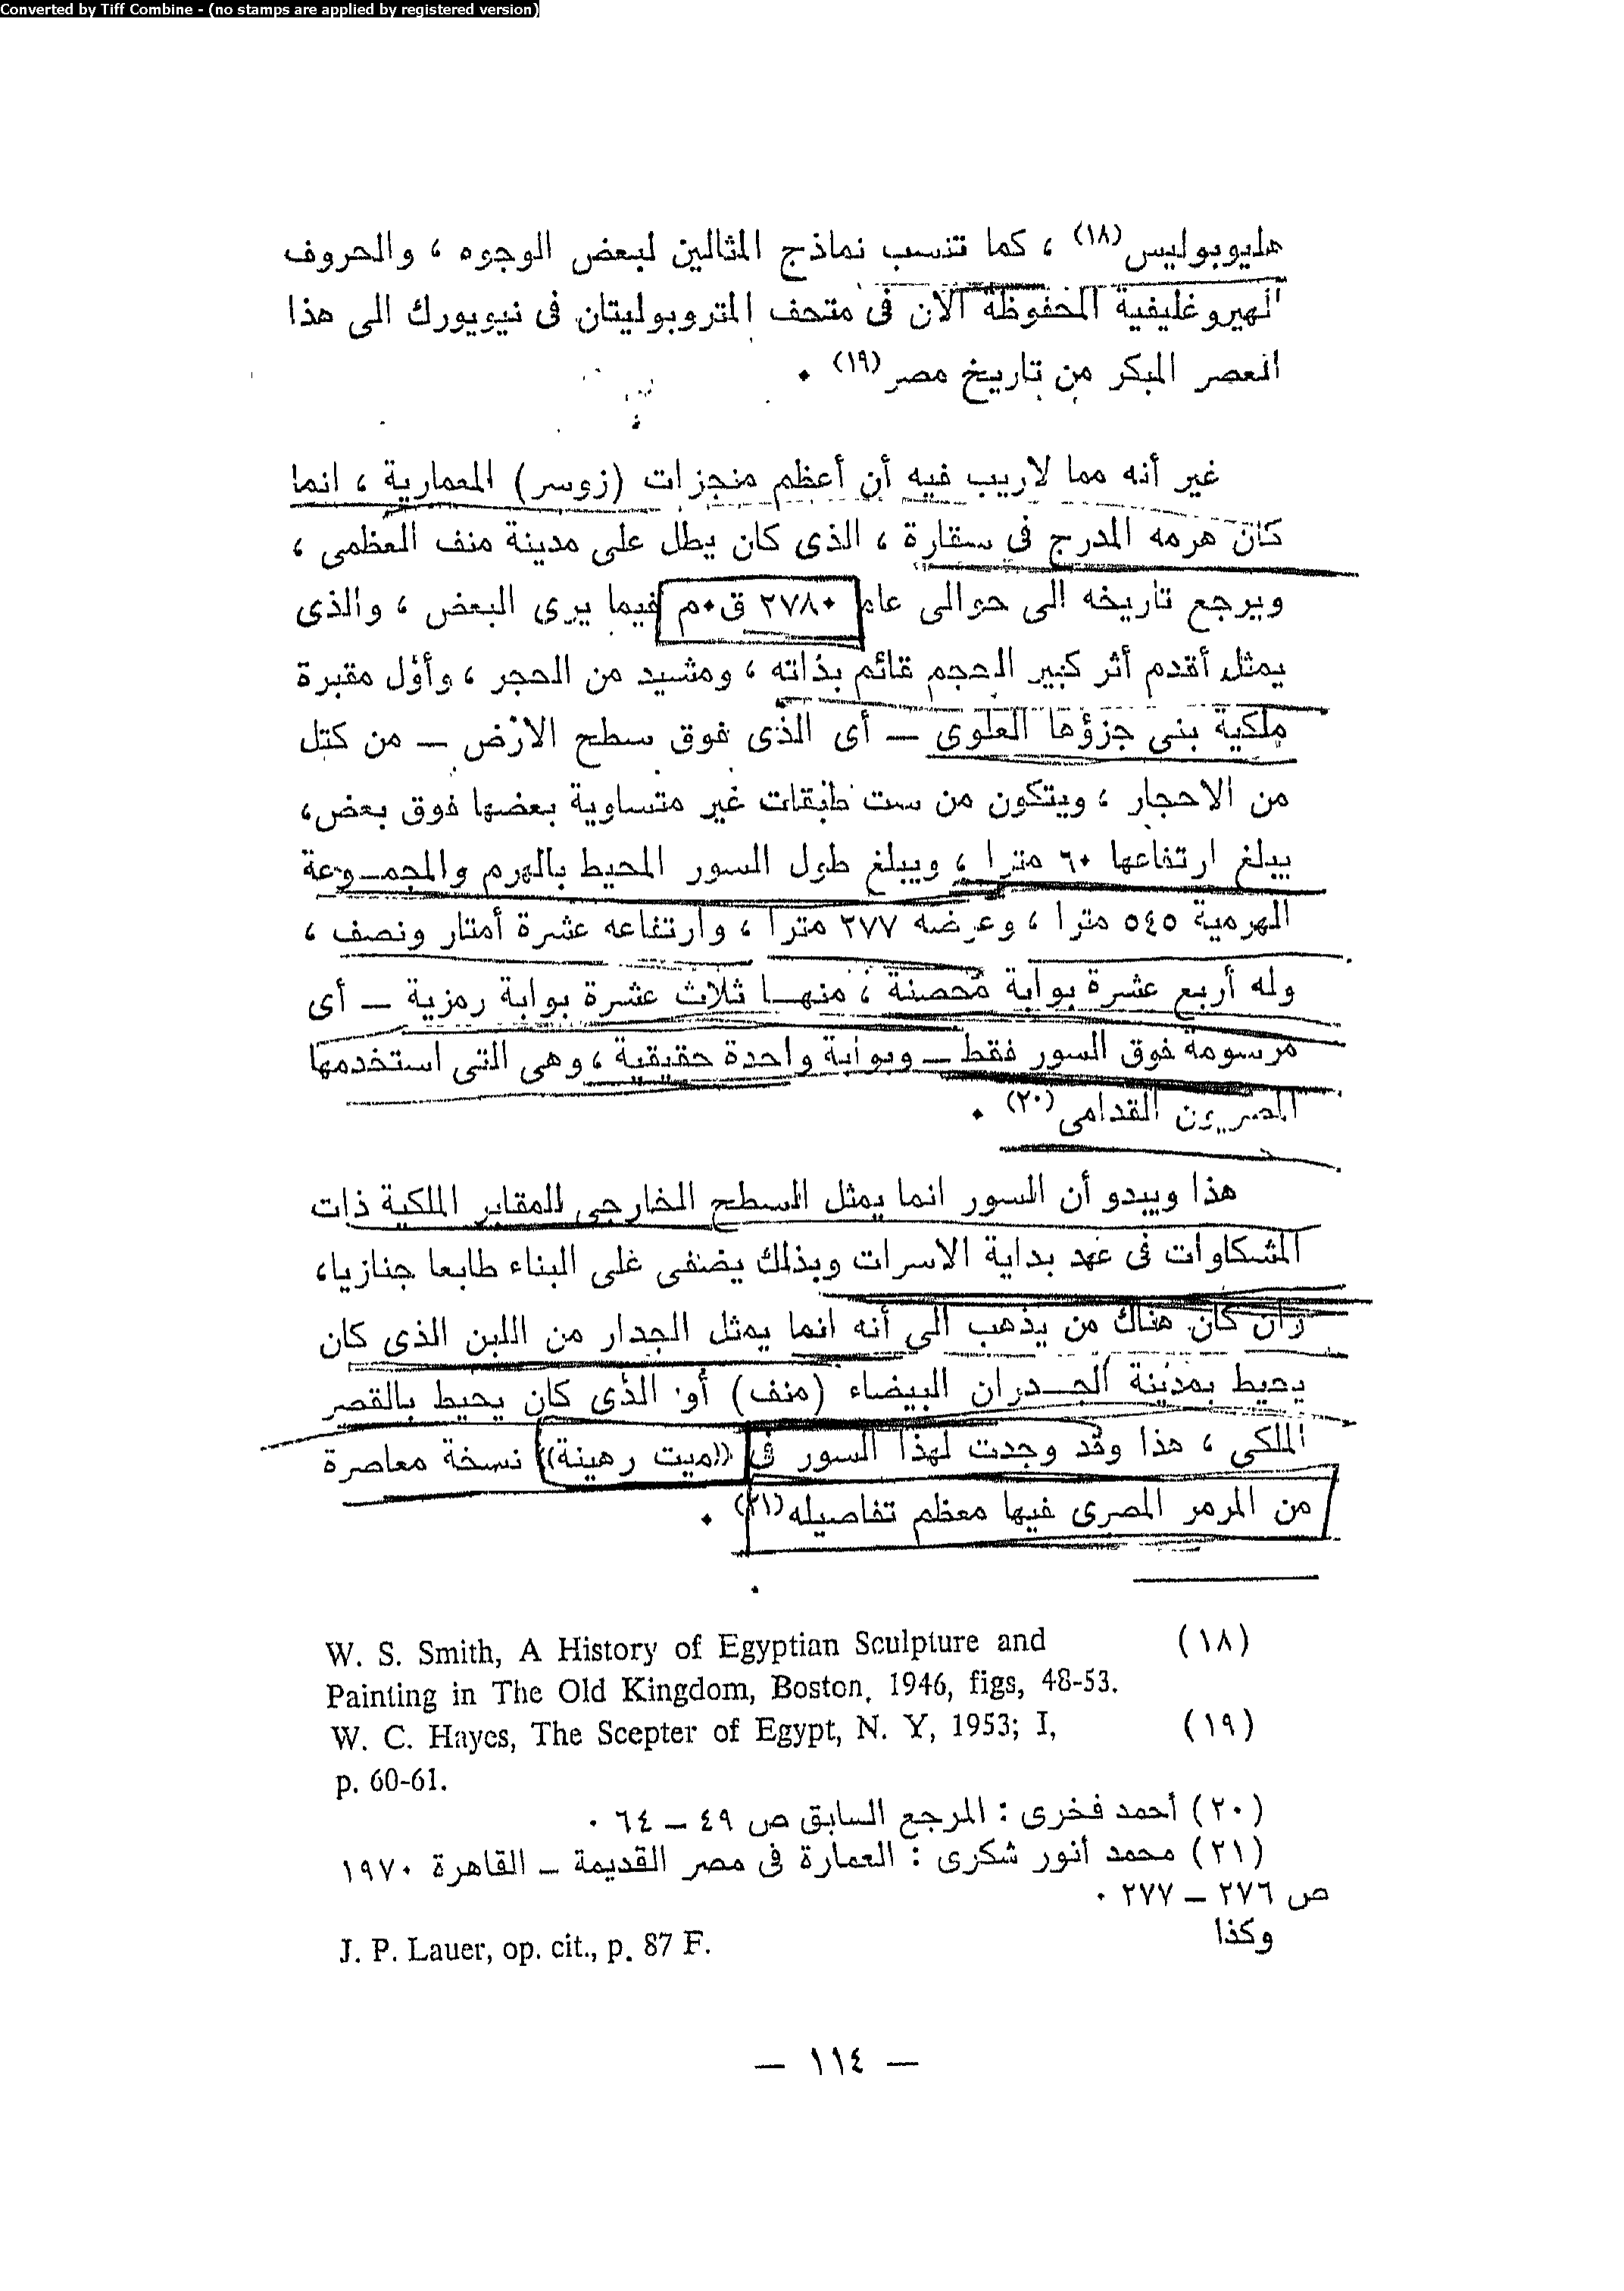 Converted by Tiff Combine - (no stamps are applied by registered version)
هليوبوليس(١٨) ، كما تنسب نماذج المثالين لبعض الوجوه ، والحروف
الهيروغليفية المحفوظة الآن فى متحف المتروبوليتان فى نيويورك الى هذا
العصر المبكر من تاريخ مصر(١٩) ٠
غير أنه مما لاريب فيه أن أعظم منجزات (زوسر) المعمارية ، انما
كان هرمه المدرج فى سقارة ، الذى كان يطل على مدينة منف العظمى ،
ويرجع تاريخه الى حوالى عام ٢٧٨٠ ق٠م فيما يرى البعض ، والذى
يمثل أقدم أثر كبير الحجم قائم بذاته ، ومشيد من الحجر ، وأول مقبرة
ملكية بنى جزؤها العلوى — أى الذى فوق سطح الارض — من كتل
من الاحجار ، ويتكون من ست طبقات غير متساوية بعضها فوق بعض،
يبلغ ارتفاعها ٦٠ مترا ، ويبلغ طول السور المحيط بالهرم والمجمـوعة
الهرمية ٥٤٥ مترا ، وعرضه ٢٧٧ مترا ، وارتفاعه عشرة أمتار ونصف ،
وله أربع عشرة بوابة محصنة ، منهـا ثلاث عشرة بوابة رمزية — أى
مرسومة فوق السور فقط — وبوابة واحدة حقيقية ، وهى التى استخدمها
المصريون القدامى(٢٠) ٠
هذا ويبدو أن السور انما يمثل السطح الخارجى للمقابر الملكية ذات
المشكاوات فى عهد بداية الاسرات وبذلك يضفى على البناء طابعا جنازيا،
وان كان هناك من يذهب الى أنه انما يمثل الجدار من اللبن الذى كان
يحيط بمدينة الجـدران البيضاء (منف) أو الذى كان يحيط بالقصر
الملكى ، هذا وقد وجدت لهذا السور فى «ميت رهينة» نسخة معاصرة
من المرمر المصرى فيها معظم تفاصيله(٢١) ٠
(١٨) W. S. Smith, A History of Egyptian Sculpture and
Painting in The Old Kingdom, Boston, 1946, figs, 48-53.
(١٩) W. C. Hayes, The Scepter of Egypt, N. Y, 1953; I,
p. 60-61.
(٢٠) أحمد فخرى : المرجع السابق ص ٤٩ — ٦٤ ٠
(٢١) محمد أنور شكرى : العمارة فى مصر القديمة — القاهرة ١٩٧٠
ص ٢٧٦ — ٢٧٧ ٠
وكذا
J. P. Lauer, op. cit., p. 87 F.
— ١١٤ —